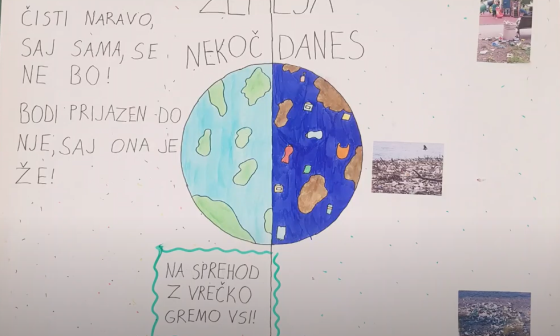 ČISTI NARAVO,
SAJ SAMA, SE
NE BO!
BODI PRIJAZEN DO
NJE, SAJ ONA JE
ŽE!
NEKOČ DANES
NA SPREHOD
Z VREČKO
GREMO VSI!